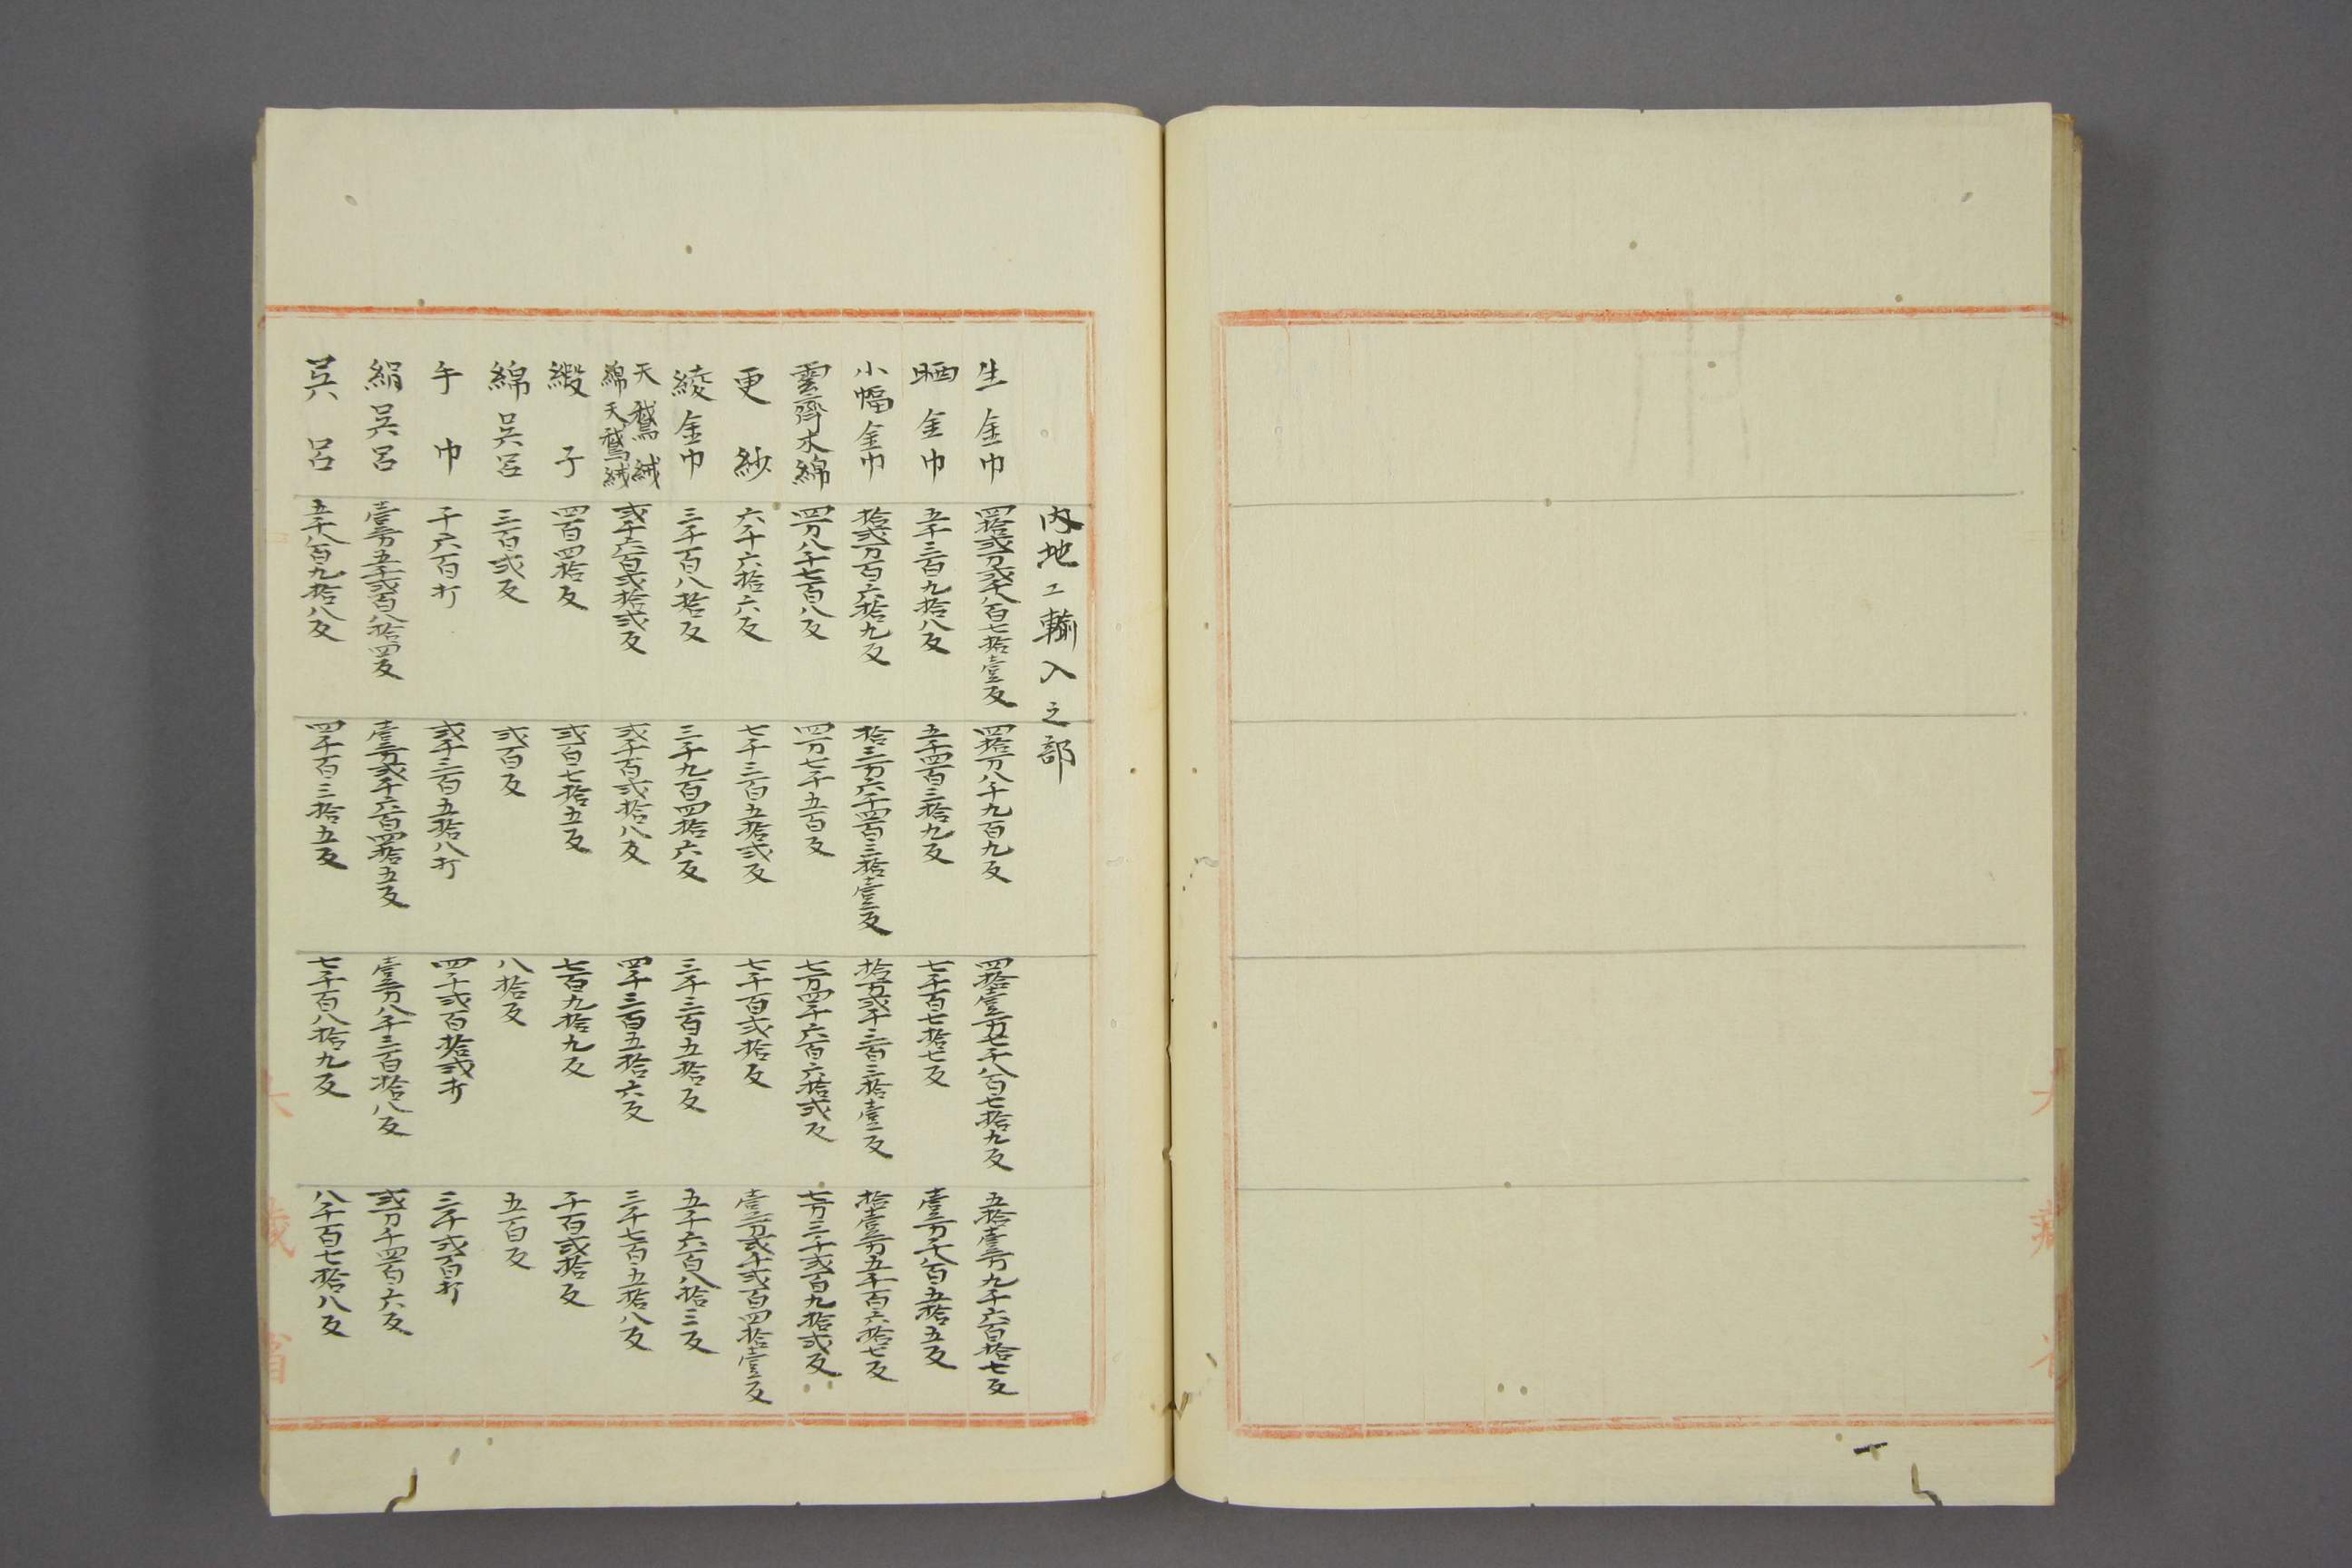 内地エ輸入之部
生金巾　四拾弐万弐千八百七拾壹反　四拾万八千九百九反　四拾壹万七千八百七拾九反　五拾壹万九千六百拾七反
晒金巾　五千三百九拾八反　五千四百三拾九反　七千百七拾七反　壹万千八百五拾五反
小幅金巾　拾弐万百六拾九反　拾三万六千四百三拾壹反　拾万弐千三百三拾壹反　拾壹万五千百六拾七反
雲齊木綿　四万八千七百八反　四万七千五百反　七万四千六百六拾弐反　七万三千弐百九拾弐反
更紗　六千六拾六反　七千三百五拾弐反　七千百弐拾反　壹万弐千弐百四拾壹反
綾金巾　三千百八拾反　三千九百四拾六反　三千三百五拾反　五千六百八拾三反
天鵞絨
綿天鵞絨　弐千六百弐拾弐反　弐千百弐拾八反　四千三百五拾六反　三千七百五拾八反
緞子　四百四拾反　弐百七拾五反　七百九拾九反　千百弐拾反
綿呉呂　三百弐反　弐百反　八拾反　五百反
手巾　千六百打　弐千三百五拾八打　四千弐百拾弐打　三千弐百打
絹呉呂　壹万五千弐百八拾四反　壹万弐千六百四拾五反　壹万八千三百拾八反　弐万千四百六反
呉呂　五千八百九拾八反　四千百三拾五反　七千百八拾九反　八千百七拾八反